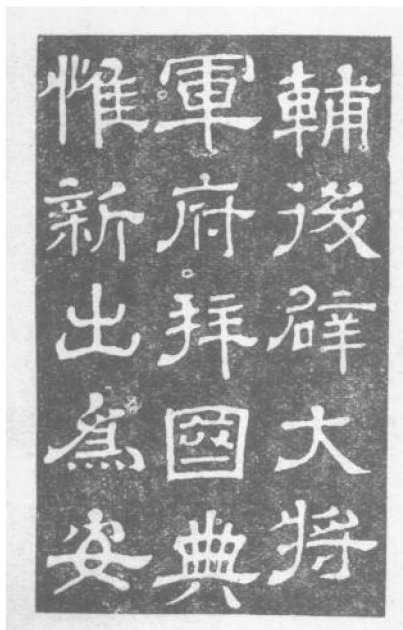 輔後辟大將
軍府拜國典
惟新出爲安